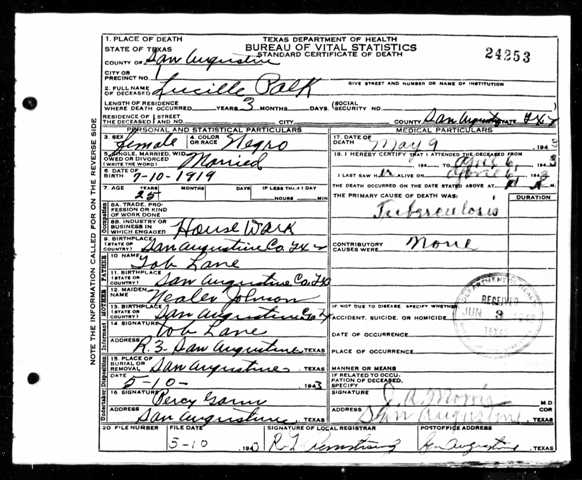 NOTE THE INFORMATION CALLED FOR ON THE REVERSE SIDE
TEXAS DEPARTMENT OF HEALTH
BUREAU OF VITAL STATISTICS
STANDARD CERTIFICATE OF DEATH
24253
1. PLACE OF DEATH
STATE OF TEXAS
COUNTY OF San Augustine
CITY OR PRECINCT NO. 1
GIVE STREET AND NUMBER OR NAME OF INSTITUTION
2. FULL NAME OF DECEASED Lucille Polk
LENGTH OF RESIDENCE WHERE DEATH OCCURRED YEARS 3 MONTHS DAYS (SOCIAL SECURITY NO.
RESIDENCE OF THE DECEASED STREET AND NO. CITY COUNTY San Augustine STATE Tex
PERSONAL AND STATISTICAL PARTICULARS
3. SEX female 4. COLOR OR RACE Negro
5. SINGLE, MARRIED, WIDOWED OR DIVORCED (WRITE THE WORD) Married
6. DATE OF BIRTH 7-10-1919
7. AGE YEARS MONTHS DAYS IF LESS THAN 1 DAY
25 HOURS MIN
8A. TRADE, PROFESSION OR KIND OF WORK DONE
8B. INDUSTRY OR BUSINESS IN WHICH ENGAGED House Work
9. BIRTHPLACE (STATE OR COUNTRY) San Augustine Co. Tx
FATHER
10 NAME Tob Lane
11. BIRTHPLACE (STATE OR COUNTRY) San Augustine Co. Tx
MOTHERS
12. MAIDEN NAME Johnson
13. BIRTHPLACE (STATE OR COUNTRY) San Augustine Co
Informant
14 SIGNATURE Tob Lane
ADDRESS R. 3. San Augustine, TEXAS
Disposition
15. PLACE OF BURIAL OR REMOVAL San Augustine TEXAS
DATE 5-10- 1943
Undertaker
16 SIGNATURE Percy
ADDRESS San Augustine, TEXAS
20 FILE NUMBER FILE DATE 5-10 1943
SIGNATURE OF LOCAL REGISTRAR R. L. Armstrong
POSTOFFICE ADDRESS San Augustine TEXAS
MEDICAL PARTICULARS
17. DATE OF DEATH May 9 1943
18. I HEREBY CERTIFY THAT I ATTENDED THE DECEASED FROM
TO April 6, 1943
I LAST SAW H er ALIVE ON April 6, 1943
THE DEATH OCCURRED ON THE DATE STATED ABOVE AT M.
THE PRIMARY CAUSE OF DEATH WAS: DURATION
Tuberculosis
CONTRIBUTORY CAUSES WERE: None
IF NOT DUE TO DISEASE SPECIFY WHETHER
ACCIDENT, SUICIDE, OR HOMICIDE
DATE OF OCCURRENCE
PLACE OF OCCURRENCE
MANNER OR MEANS
IF RELATED TO OCCUPATION OF DECEASED, SPECIFY
SIGNATURE J. A. Morris M.D.
ADDRESS San Augustine, COR TEXAS
RECEIVED
JUN 3
TEXAS